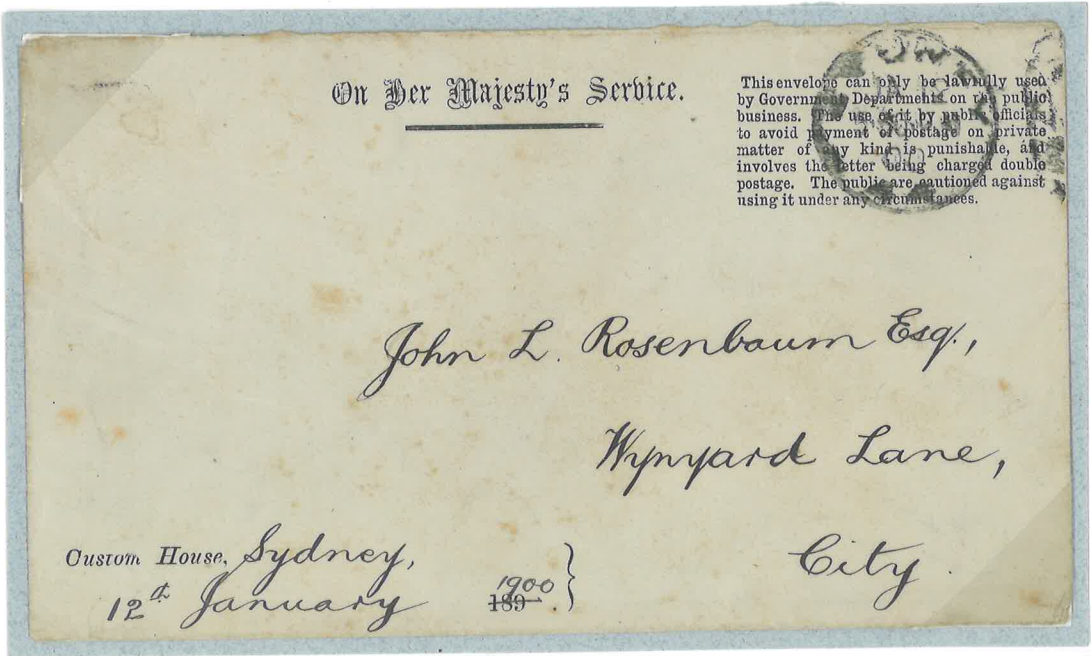 On Her Majesty's Service.
This envelope can only be lawfully used
by Government Departments on the public
business. The use of it by public officials
to avoid payment of postage on private
matter of any kind is punishable, and
involves the letter being charged double
postage. The public are cautioned against
using it under any circumstances.
John L. Rosenbaum Esq.,
Wynyard Lane,
City.
Custom House, Sydney,
12th January 1900
189